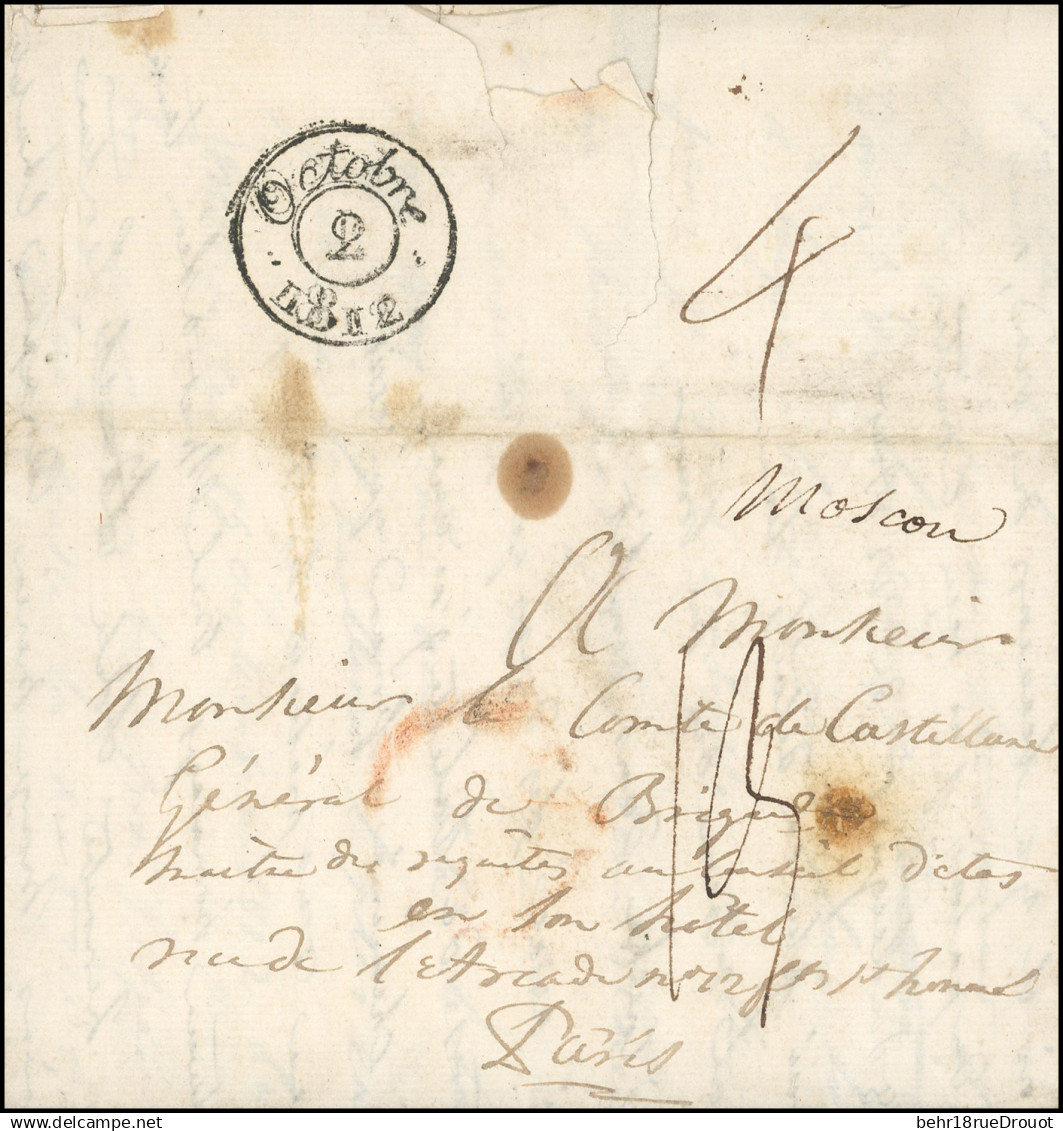 Octobre
2
1812
4
Moscou
A Monsieur
Monsieur le Comte de Castellane
Général de Brigade
maitre des requêtes au Conseil d'état
en son hôtel
rue de l'Arcade n° 22 fbg St honoré
Paris
behr18rueDrouot